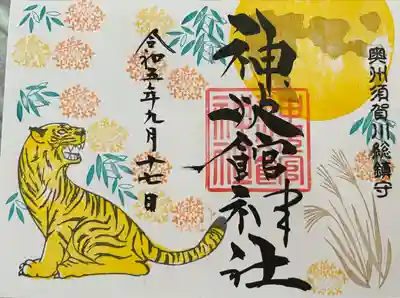 奥州須賀川総鎮守
神炊館神社
令和五年九月十七日